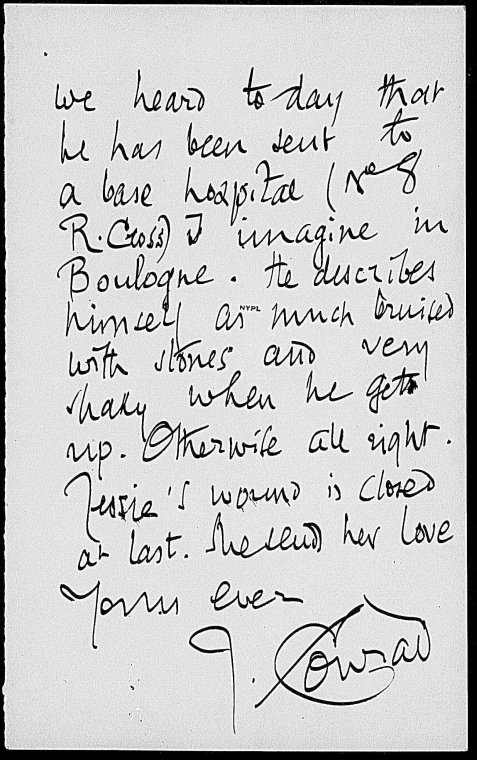 we heard to-day that
he has been sent to
a base hospital (No 8
R. Cross) I imagine in
Boulogne. He describes
himself as much bruised
NYPL
with stones and very
shaky when he gets
up. Otherwise all right.
Jessie's wound is closed
at last. She sends her love
Yours ever
J. Conrad